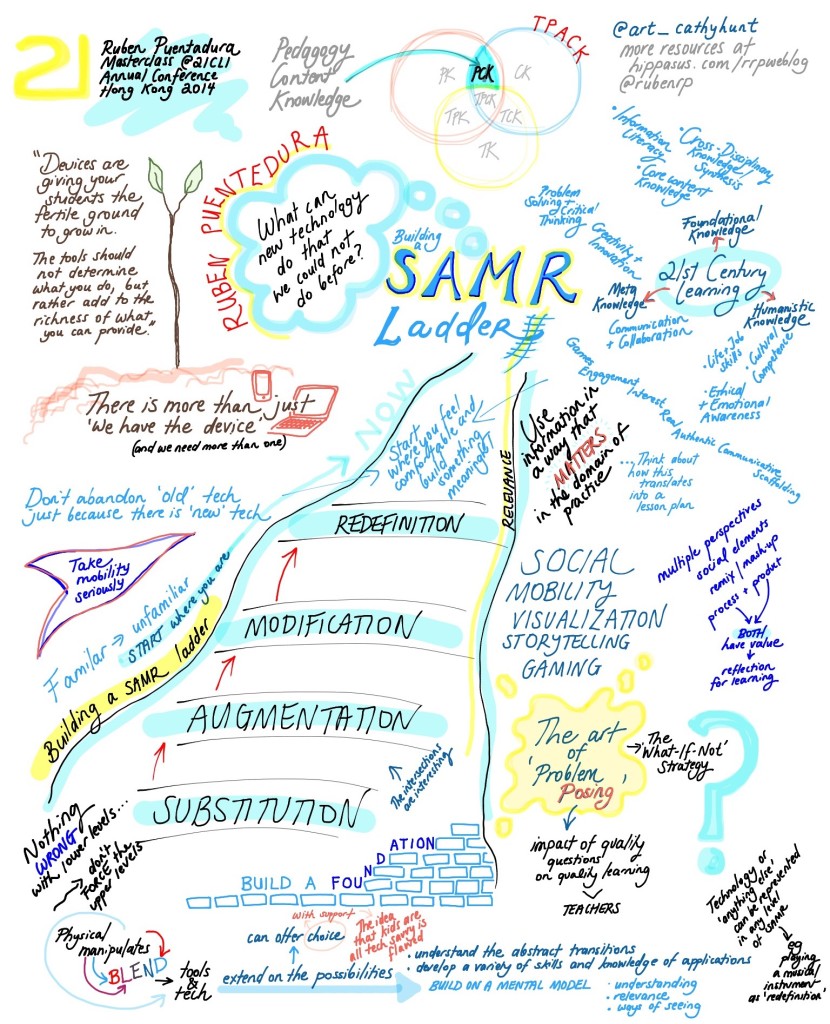 21
Ruben Puentadura
Masterclass @21CLI
Annual Conference
Hong Kong 2014
Pedagogy
Content
Knowledge
TPACK
PK
PCK
CK
TPCK
TPK
TCK
TK
@art_cathyhunt
more resources at
hippasus.com/rrpweblog
@rubenrp
"Devices are
giving your
students the
fertile ground
to grow in.
The tools should
not determine
what you do, but
rather add to the
richness of what
you can provide."
RUBEN PUENTEDURA
What can
new technology
do that
we could not
do before?
Building
a
SAMR
Ladder
• Information
Literacy
• Cross-Disciplinary
Knowledge/
Synthesis
• Core content
Knowledge
Problem
Solving +
Critical
Thinking
Creativity +
Innovation
Foundational
Knowledge
21st Century
Learning
Meta
Knowledge
Humanistic
Knowledge
Communication
+ Collaboration
• Life + Job
skills
• Cultural
Competence
• Ethical
+ Emotional
Awareness
Games
Engagement
Interest
Real
Authentic
Communicative
Scaffolding
...Think about
how this
translates
into a
lesson plan
There is more than just
'We have the device'
(and we need more than one)
NOW
Start
where you feel
comfortable and
build
something
meaningful
RELEVANCE
Use
information in
a way that
MATTERS
in the domain of
practice
Don't abandon 'old' tech
just because there is 'new' tech
Take
mobility
seriously
Familar → unfamiliar
START where you are
Building a SAMR ladder
REDEFINITION
MODIFICATION
AUGMENTATION
SUBSTITUTION
The intersections
are interesting
SOCIAL
MOBILITY
VISUALIZATION
STORYTELLING
GAMING
multiple perspectives
social elements
remix/mash-up
process + product
BOTH
have value
reflection
for learning
The art
of
'Problem
Posing'
→ The
'What-If-Not'
Strategy
?
impact of quality
questions
on quality learning
TEACHERS
Nothing
WRONG
with lower levels...
→ don't
FORCE the
upper levels
BUILD A FOUNDATION
Physical
manipulates
BLEND
→ tools
&
tech
with support
can offer choice
The idea
that kids are
all tech savvy is
flawed
extend on the possibilities
• understand the abstract transitions
• develop a variety of skills and knowledge of applications
BUILD ON A MENTAL MODEL
• understanding
• relevance
• ways of seeing
Technology or
'anything else',
can be represented
in any level
of SAMR
eg
playing
a musical
instrument
as 'redefinition'